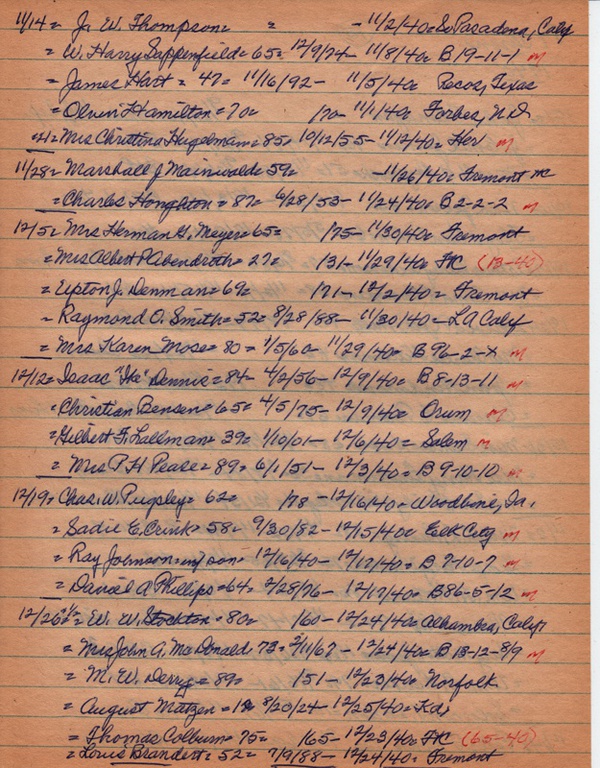 11/14= J. W. Thompson= = -11/2/40= So Pasadena, Calif
= W. Harry Sappenfield= 65= 12/9/74- 11/8/40= B 19-11-1 m
= James Hart = 47= 11/16/92- 11/5/40= Pecos, Texas
= Oliver Hamilton= 70= /70- 11/1/40= Forbes, N.D
=21= Mrs Christina Hugelman= 85= 10/12/55- 11/12/40= Her m
11/28= Marshall J Mainwald= 59= -11/26/40= Fremont mc
= Charles Honghton= 87= 6/28/53- 11/24/40= B 2-2-2 m
12/5= Mrs Herman G. Meyer= 65= /75- 11/30/40= Fremont
= Mrs Albert P Abendroth= 27= /31- 11/29/40= FC (13-40)
= Upton J. Denman= 69= /71- 12/2/40= Fremont
= Raymond O. Smith= 52= 8/28/88- 11/30/40= LA Calif
= Mrs Karen Mose= 80= 1/5/60- 11/29/40= B 96-2-X m
12/12= Isaac "Ike" Dennis= 84= 4/2/56- 12/9/40= B 8-13-11 m
= Christian Bensen= 65= 4/5/75- 12/9/40= Orum m
= Gilbert F. Lallman= 39= 1/10/01- 12/6/40= Salem m
= Mrs P. H Pease= 89= 6/1/51- 12/3/40= B 9-10-10 m
12/19= Chas. W. Pugsley= 62= /78 -12/16/40= Woodbine, Ia.
= Sadie E. Crink= 58= 9/30/82- 12/15/40= Elk City m
= Ray Johnson= inf son= 12/16/40- 12/17/40= B 7-10-7 m
= Daniel A Phillips= 64= 2/28/76- 12/17/40= B 86-5-12 m
12/26= W. W. Stockton= 80= /60- 12/24/40= Alhambra, Calif
= Mrs John A. McDonald= 73= 2/11/67- 12/24/40= B 13-12-8/9 m
= M. W. Derry= 89= /51- 12/23/40= Norfolk
= August Matzen= 18= 8/20/24- 12/25/40= Kds
= Thomas Colburn= 75= /65- 12/23/40= FC (65-40)
= Louis Brandert= 52= 7/9/88- 12/24/40= Fremont